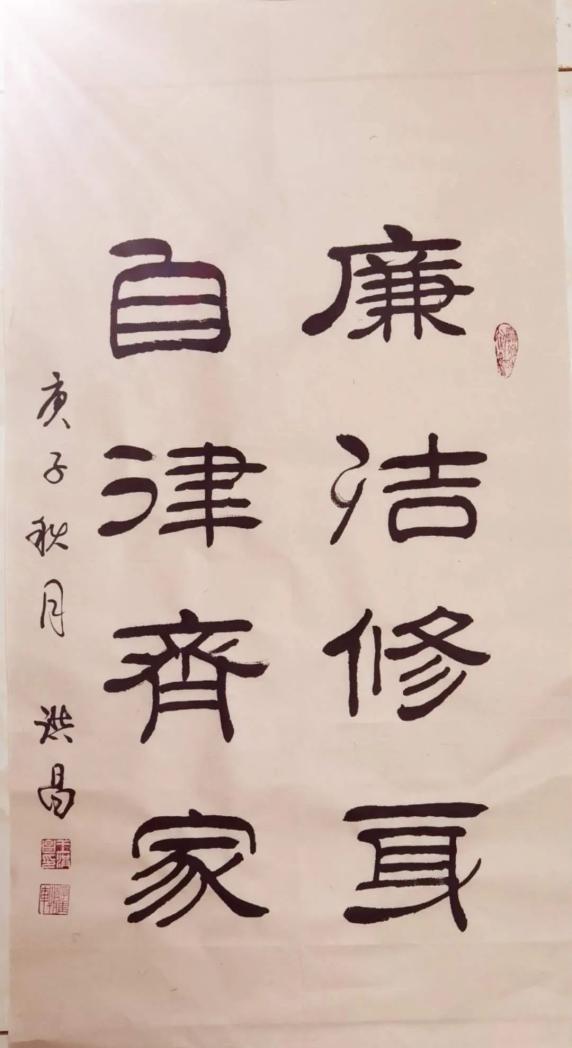 廉洁修身
自律齊家
庚子秋月 洪昌